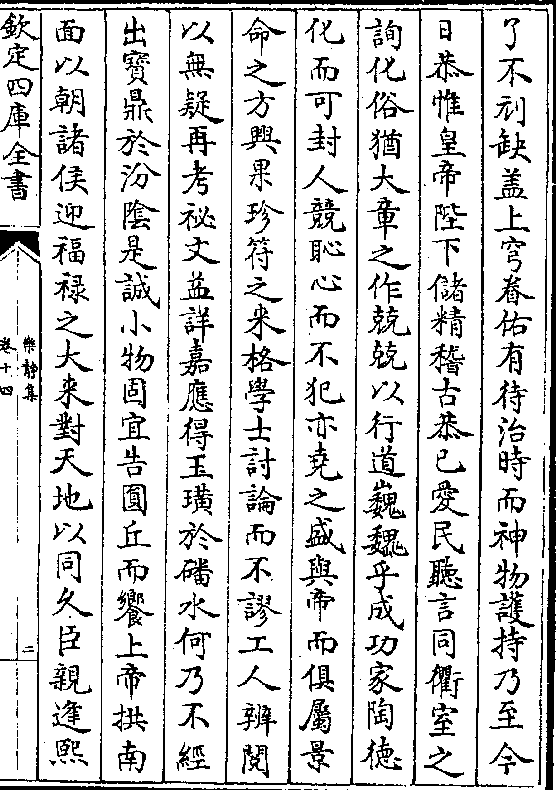 了不刓缺盖上穹眷佑有待治時而神物護持乃至今
日恭惟皇帝陛下儲精稽古恭已愛民聽言同衢室之
詢化俗猶大章之作兢兢以行道巍巍乎成功家陶德
化而可封人競恥心而不犯亦堯之盛與帝而俱屬景
命之方興果珍符之来格學士討論而不謬工人辨閲
以無疑再考祕文益詳嘉應得玉璜於磻水何乃不經
出寳鼎於汾隂是誠小物固宜告圓丘而饗上帝拱南
面以朝諸侯迎福禄之大来對天地以同久臣親逢熙
欽定四庫全書
樂静集
卷十四
二